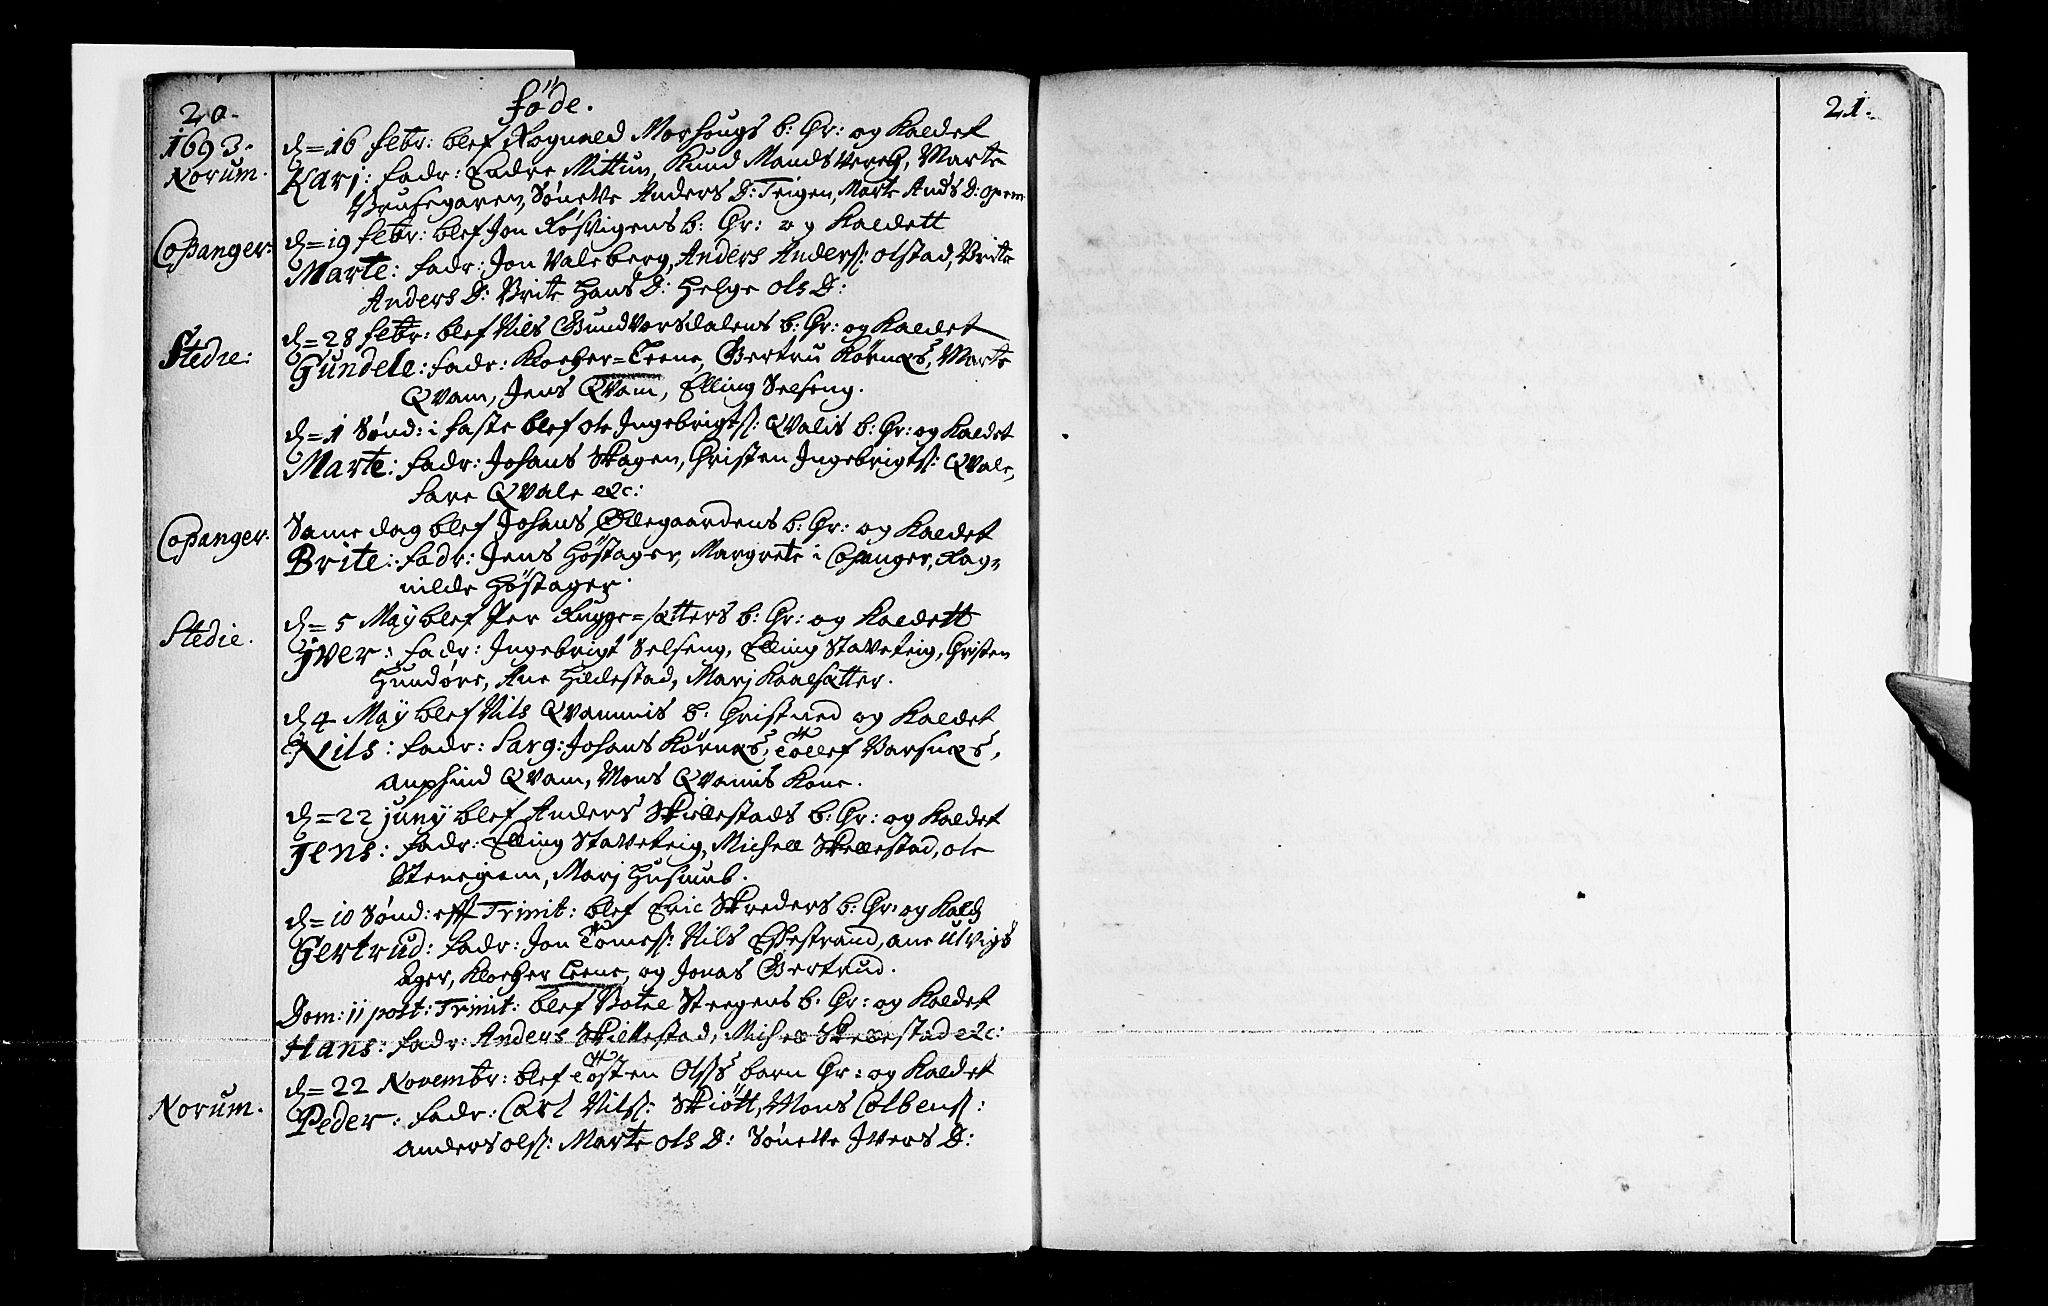 20.
föde.
1693.
Norum.
d=16 febr: blef Rognald Morhougs b: Chr: og kaldet
Kari: fadr: Endre Mittun, Knud Mands Vereg, Marte
Brusegaren, Sønneve Anders D: Teigen, Marte Ands D:
Coßanger:
d=19 febr: blef Jon Røsvigens b: Chr: og kaldett
Marte: fadr: Jon Valeberg, Anders Anderß: olstad, Brite
Anders D: Brite Hans D: Helge ols D:
Stedie:
d=28 febr: blef Nils Gundvorsdalens b: Chr: og kaldet
Gundele: fadr: Klocker=Lene, Gertru Kørnæs, Marte
Qvam, Jens Qvam, Elling Selseng.
d=1 Sønd: i faste blef ole Ingebrigtß: Qvalis b: Chr: og kaldet
Marte: fadr: Johans Skagen, Christen Ingebrigtß: Qvale,
Sare Qvale etc:
Coßanger.
Same dag blef Johans Ødegaardens b: Chr: og kaldet
Brite: fadr: Jens Høstager, Margrete i Coßanger, Rag=
nilde Høstager.
Stedie.
d=5 Maÿ blef Per Rugge=sætters b: Chr: og kaldett
Iver: fadr: Ingebrigt Selseng, Elling Staveteig, Christen
Hundøre, Ane Hildestad, Mari Kaalsætter.
d 4 Maÿ blef Nils Qvammis b: Christned og kaldet
Nils: fadr: Sarg: Johans Kørnæs, Tollef Varsnæs,
Anphind Qvam, Mons Qvamis Kone.
d=22 junÿ blef Anders Skillestads b: Chr: og kaldet
Jens: fadr: Elling Staveteig, Michell Skellestad, ole
Stenegiem, Mari Husum.
d=10 Sønd: eft Trinit: blef Eric Skreders b: Chr: og kald
Gertrud: fadr: Jon Tomesß: Nils Eßestrand, ane Utvigs
ager, Klocker Lene, og Jonas Gertrud.
Dom: 11 post: Trinit: blef Botel Steegens b: Chr: og kaldet
Hans: fadr: Anders Skillestad, Michell Skellestad etc:
Norum.
d=22 Novembr: blef Tosten Olsß barn Chr: og kaldet
Peder: fadr: Carl Nilsß: Skiött, Mons Colbensß:
Anders olsß: Marte ols D: Sønneve Ivers D:
21.